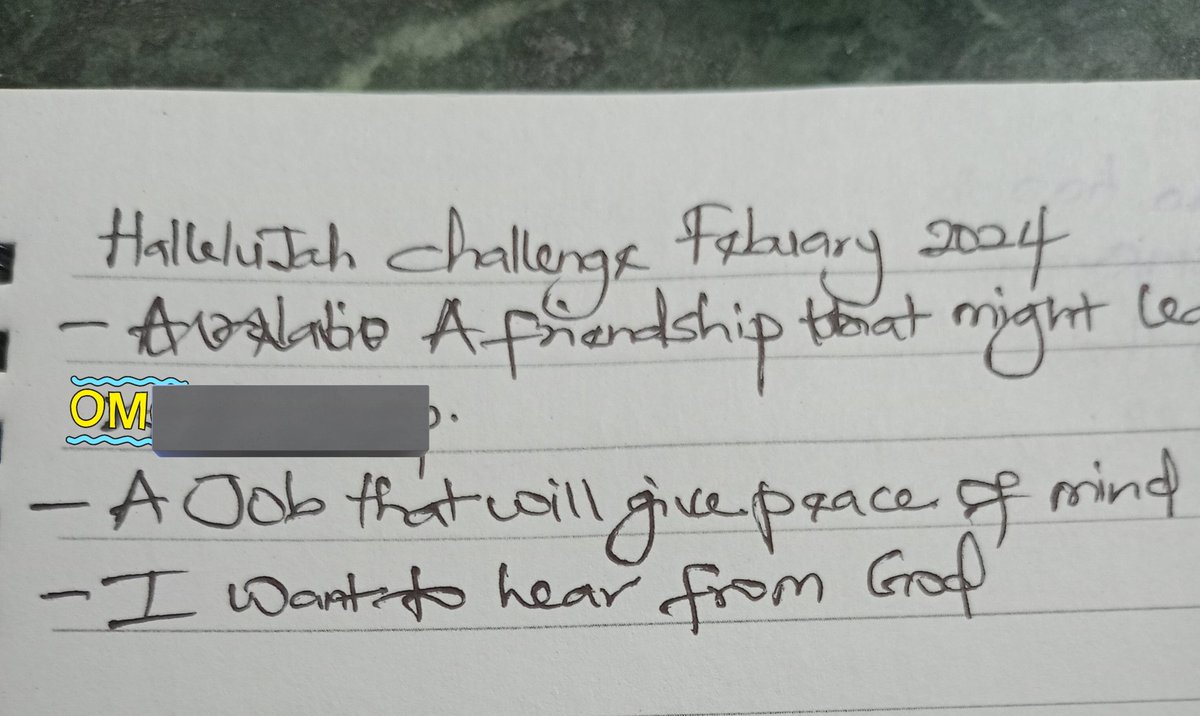 HalleluJah challenge Febuary 2024
- A friendship that might lea
OM p.
- A Job that will give peace of mind
- I want to hear from God